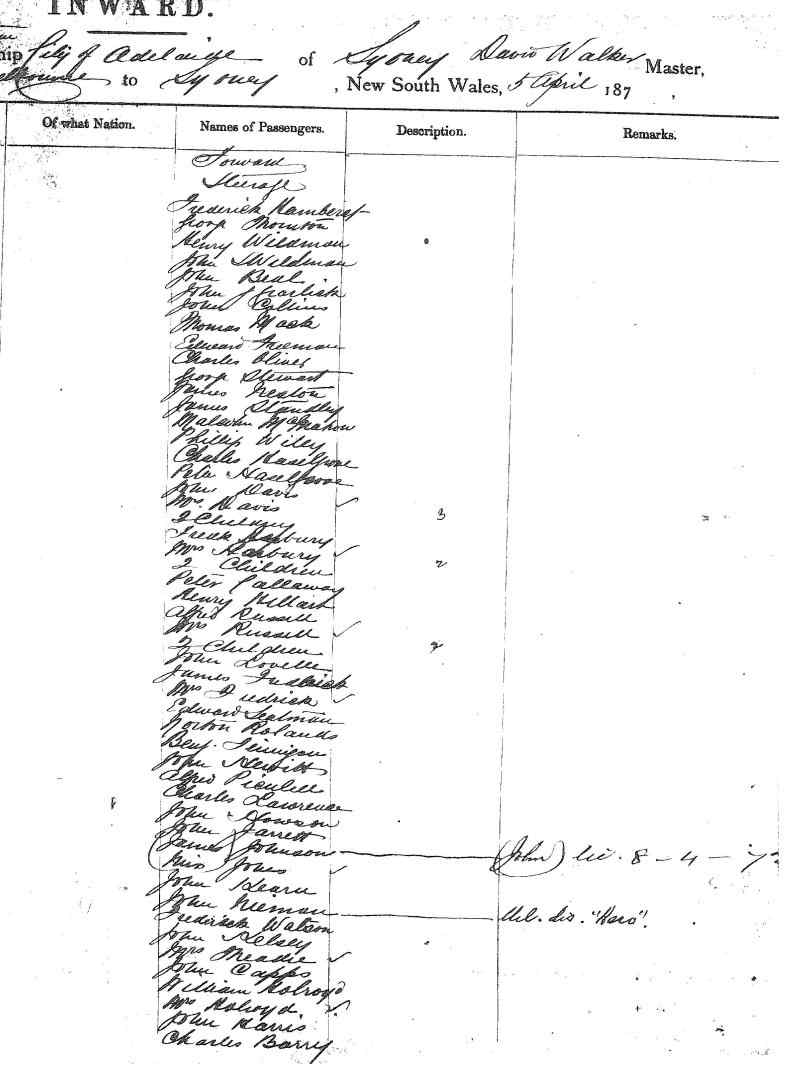 INWARD.
City of Adelaide of Sydney David Walker Master,
to Sydney , New South Wales, 5 April 187 ,
Of what Nation. Names of Passengers. Description. Remarks.
Forward
Steerage
Frederick
Thornton
Henry Wildman
John Wildman
John Beal
John Garlick
John Collins
Thomas Mack
Edward Freeman
Charles Oliver
Stewart
James Neaton
James Standley
Malcolm McMahon
Phillip Wiley
Charles Haselgrove
Peter Haselgrove
John Davis
Mrs. Davis
2 Children 3
Fredk Harbury
Mrs Harbury
2 Children 2
Peter Callaway
Henry
Alfred Russell
Mrs Russell
2 Children 2
John Lovelle
James Fredrick
Mrs Fredrick
Edward Seatman
Norton Rolands
Benj. Finnigan
John Hewitt
Alfred
Charles Lawrence
John Howson
John Jarrett
(James) Johnson (John) lic. 8-4-7
Miss Jones
John Hearn
John Nieman Mel. dis. "Hero".
Frederick Watson
John Kelsey
Mrs Meadie
John Capps
William Holroyd
Mrs Holroyd.
John Harris
Charles Barry